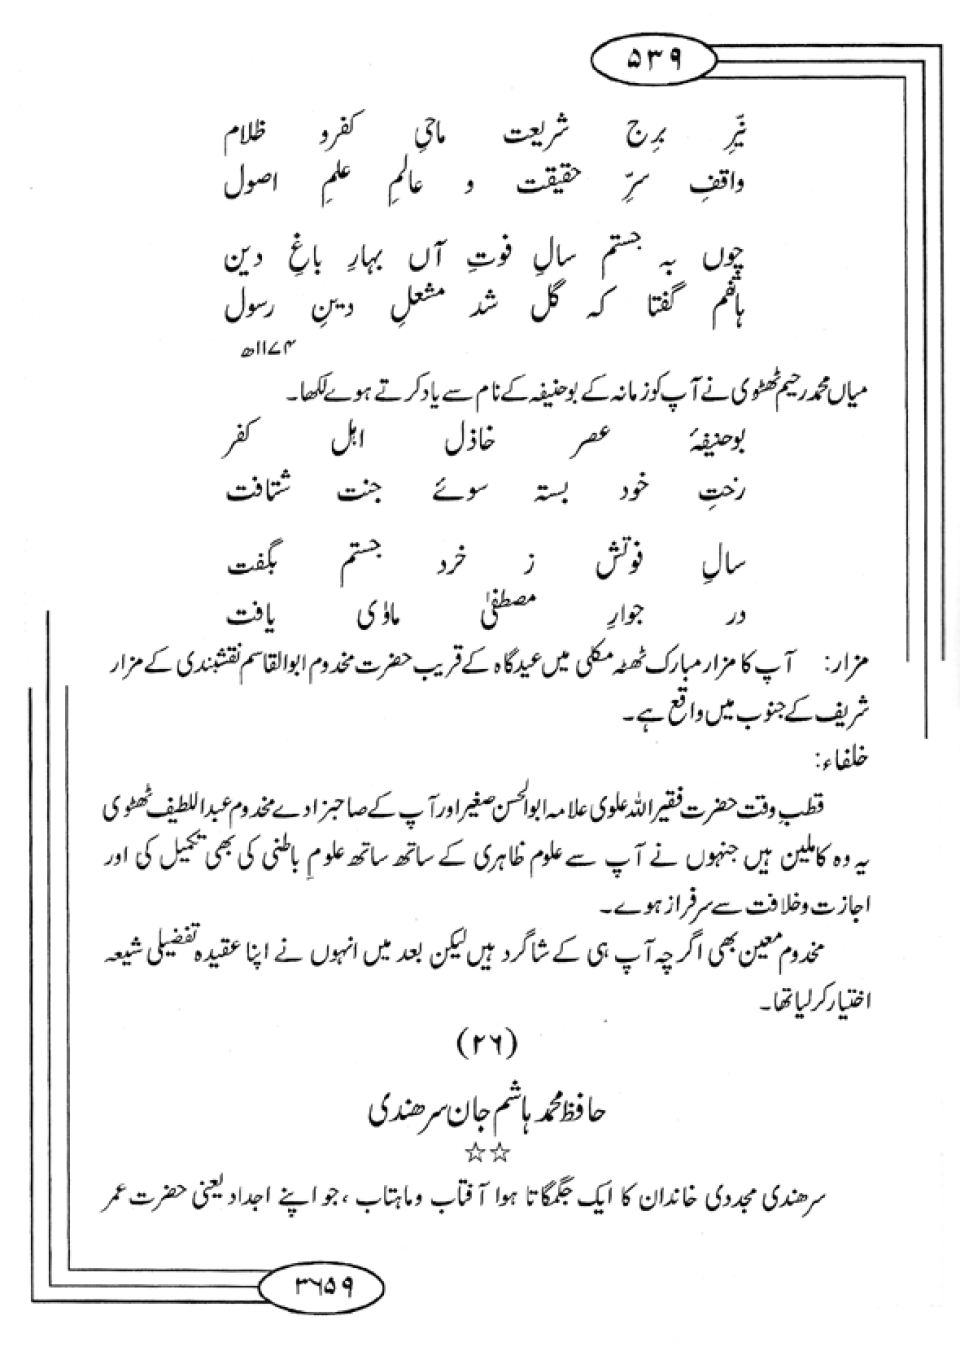 ۵۳۹
نیّرِ برجِ شریعت ماحیِ کفرو ظلام
واقفِ سرِّ حقیقت و عالمِ علمِ اصول
چوں بہ جستم سالِ فوتِ آں بہارِ باغِ دین
ہاتفم گفتا کہ گل شد مشعلِ دینِ رسول
۱۱۷۴ھ
میاں محمد رحیم ٹھٹوی نے آپ کو زمانہ کے بو حنیفہ کے نام سے یاد کرتے ہوے لکھا۔
بوحنیفۂ عصر خاذل اہل کفر
رختِ خود بستہ سوئے جنت شتافت
سالِ فوتش ز خرد جستم بگفت
در جوارِ مصطفیٰ ماوٰی یافت
مزار: آپ کا مزار مبارک ٹھٹہ مکلی میں عیدگاہ کے قریب حضرت مخدوم ابوالقاسم نقشبندی کے مزار
شریف کے جنوب میں واقع ہے۔
خلفاء:
قطبِ وقت حضرت فقیر اللہ علوی علامہ ابوالحسن صغیر اور آپ کے صاحبزادے مخدوم عبداللطیف ٹھٹوی
یہ وہ کاملین ہیں جنہوں نے آپ سے علوم ظاہری کے ساتھ ساتھ علومِ باطنی کی بھی تکمیل کی اور
اجازت و خلافت سے سرفراز ہوے۔
مخدوم معین بھی اگرچہ آپ ہی کے شاگرد ہیں لیکن بعد میں انہوں نے اپنا عقیدہ تفضیلی شیعہ
اختیار کر لیا تھا۔
(۲۶)
حافظ محمد ہاشم جان سرھندی
☆☆
سرھندی مجددی خاندان کا ایک جگمگاتا ہوا آفتاب و ماہتاب ، جو اپنے اجداد یعنی حضرت عمر
۳۶۵۹